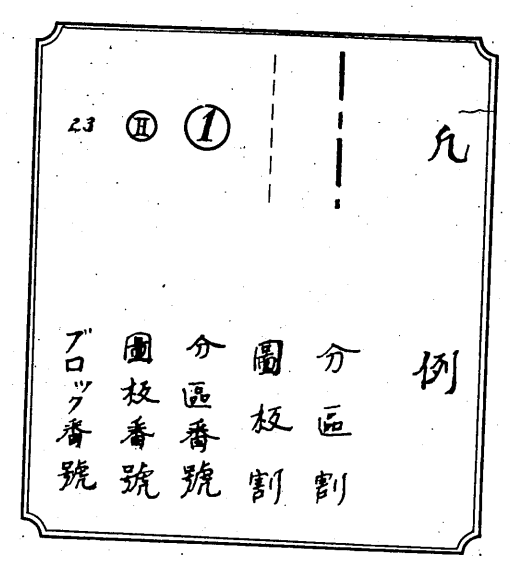 凡例
分區割
圖板割
① 分區番號
Ⅱ 圖板番號
23 ブロック番號